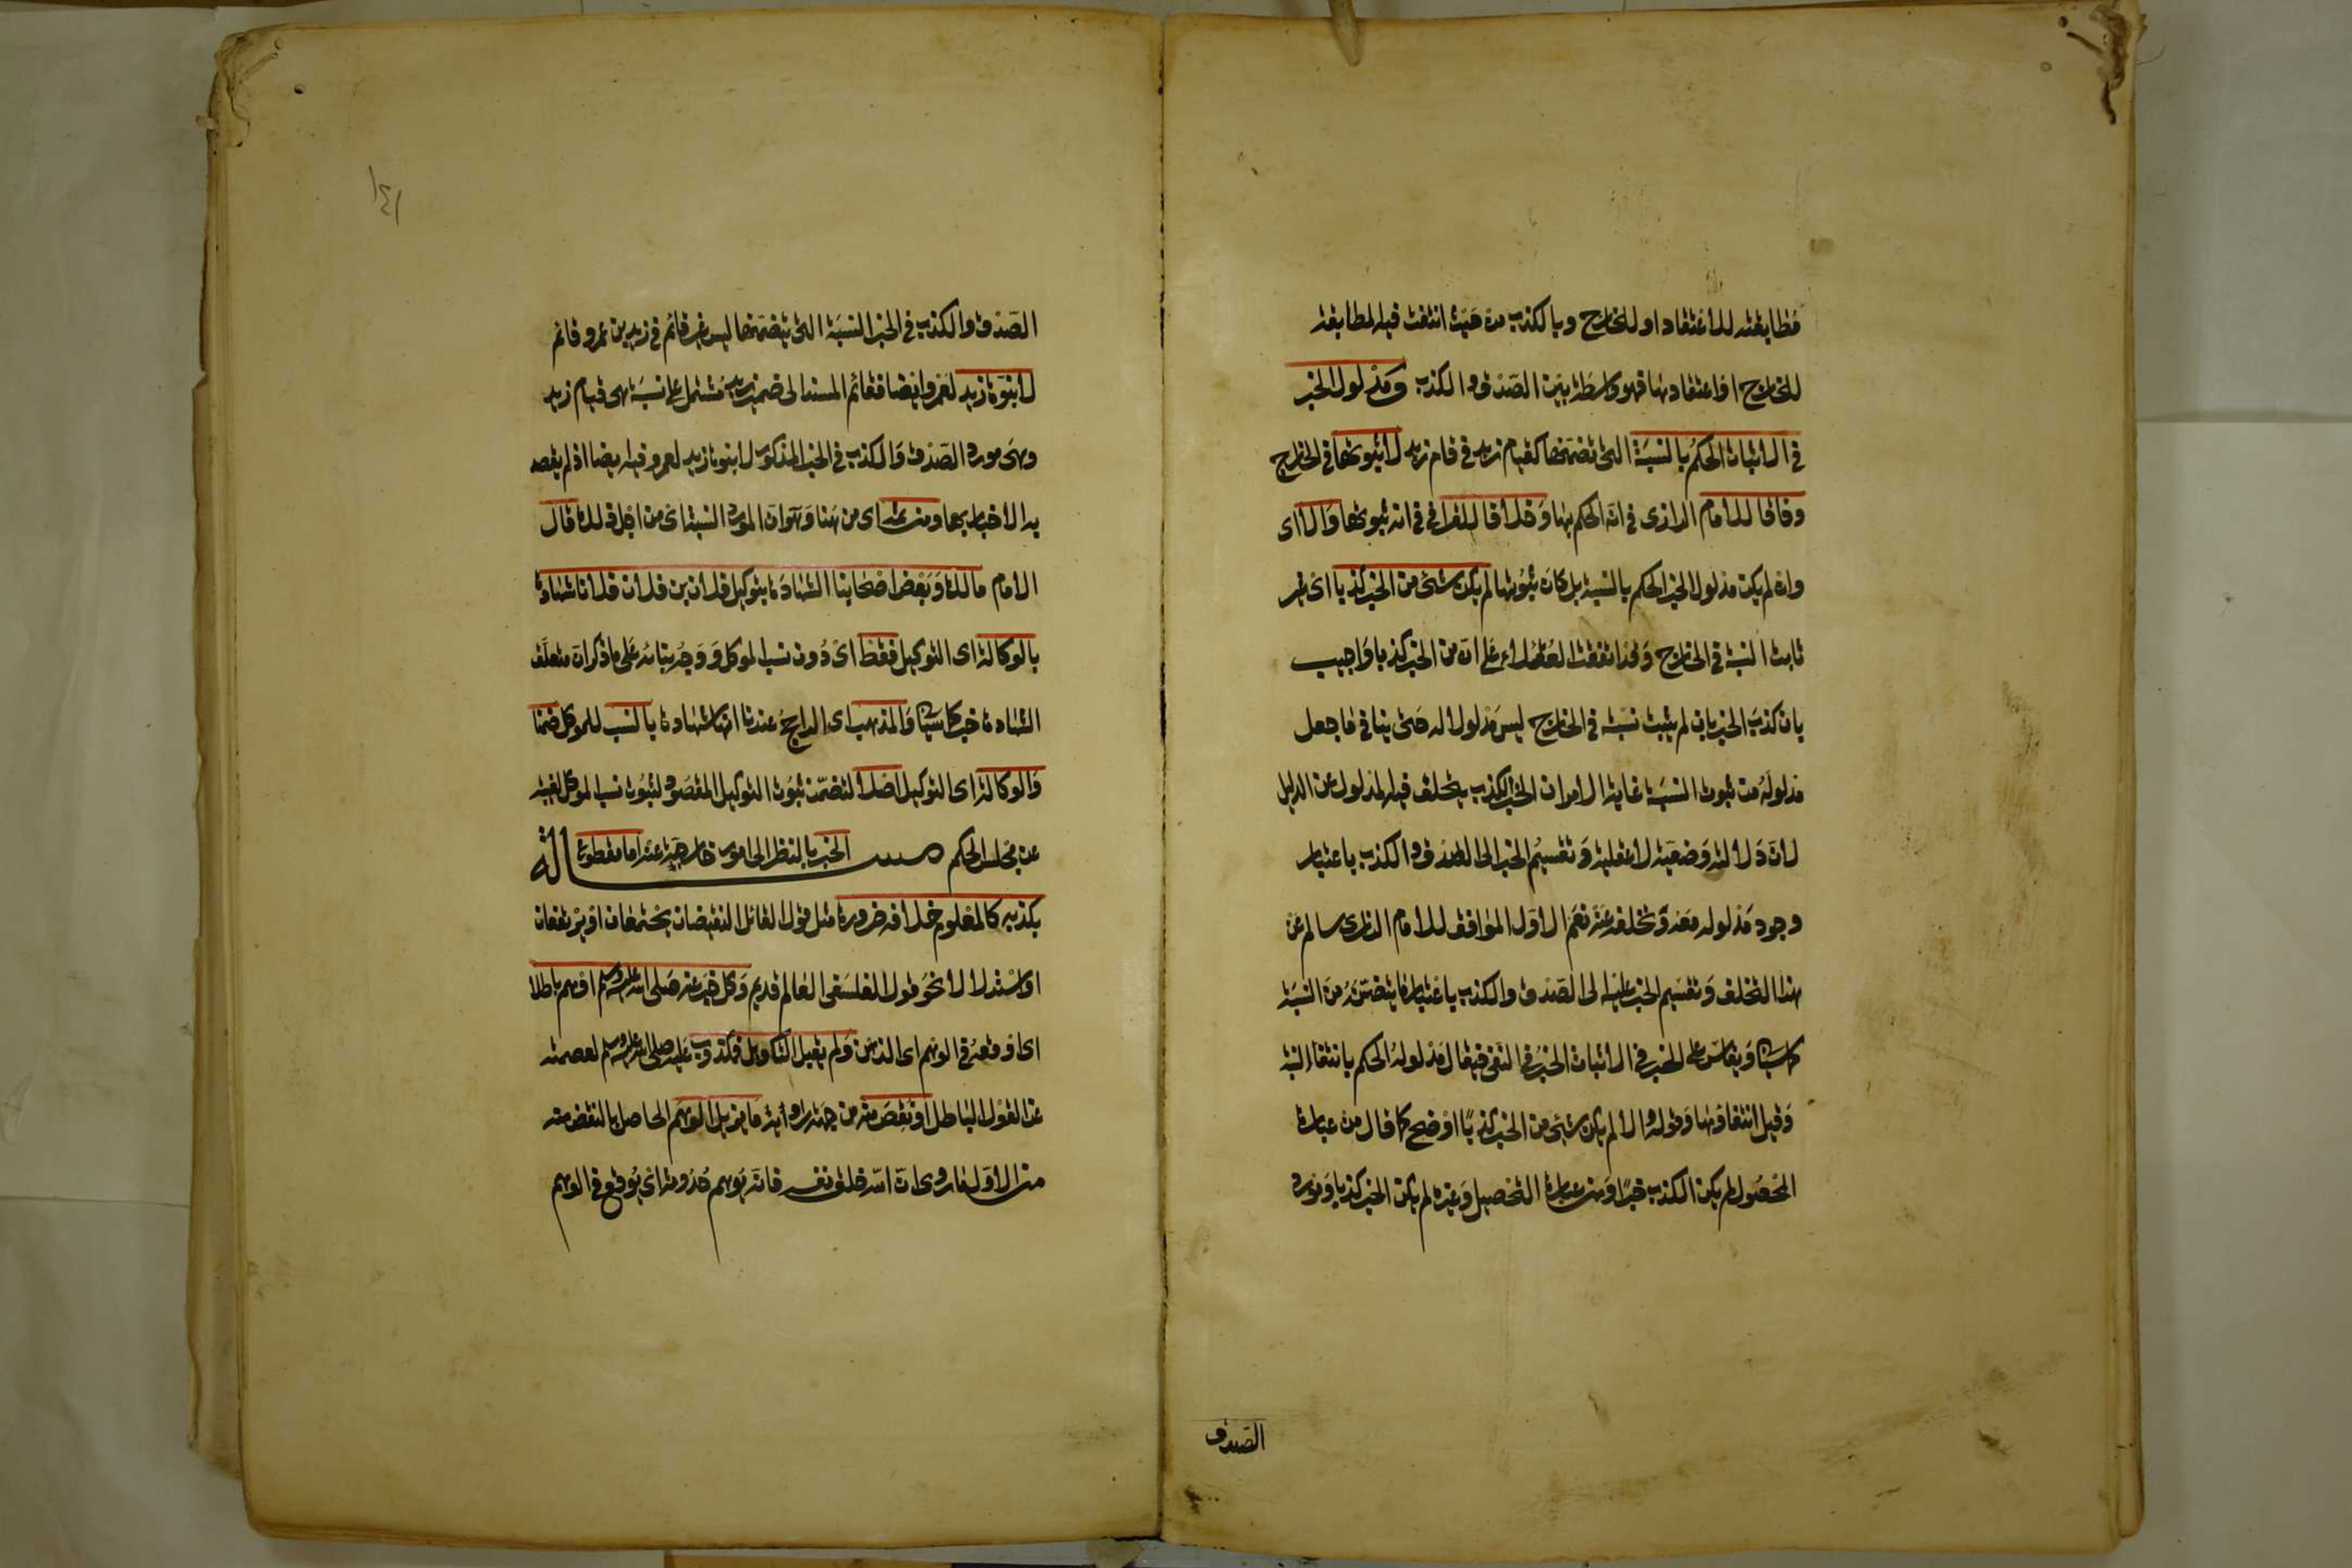 مطابقته للاعتقاد او للخارج وبالكذب من حيث انتفت فيه المطابقة
للخارج او اعتقاد منها فهو واسطة بين الصدق والكذب ومدلول الخبر
في الاثبات الحكم بالنسبة التي تضمنها كقيام زيد في قام زيد لا ثبوتها في الخارج
وفاقا للامام الرازي في انه الحكم بها وخلافا للقرافي في انه ثبوتها والا اي
وان لم يكن مدلول الخبر الحكم بالنسبة بل كان ثبوتها لم يكن شئ من الخبر كذبا اي غير
ثابت النسبة في الخارج وقد اتفقت العقلاء على ان من الخبر كذبا واجيب
بان كذب الخبر بان لم يثبت نسبته في الخارج ليس مدلولا له حتى ينافي ما جعل
مدلوله من ثبوت النسبة غاية الامر ان الخبر الكذب يتخلف فيه المدلول عن الدليل
لان دلالته وضعية لا عقلية وتقسيم الخبر الى الصدق والكذب باعتبار
وجود مدلوله معه وتخلفه عنه نعم الاول الموافق للامام الرازي سالم عن
هذا التخلف وتقسيم الخبر عليه الى الصدق والكذب باعتبار ما يتضمنه من النسبة
كما سيأتي ويقاس على الخبر في الاثبات الخبر في النفي فيقال مدلوله الحكم بانتفاء النسبة
وقيل انتفاؤها وقوله والا لم يكن شئ من الخبر كذبا اوضح كما قال من عبارة
المحصول لم يكن الكذب خبرا ومن عبارة التحصيل وغيره لم يكن الخبر كذبا ومورد
الصدق
١٤١
الصدق والكذب في الخبر النسبة التي يتضمنها ليس غير قائم في زيد بن عمرو قائم
لا بنوة زيد لعمرو ايضا فقائم المسند الى ضمير زيد مشتمل على نسبة هي قيام زيد
وهي مورد الصدق والكذب في الخبر المذكور لا بنوة زيد لعمرو فيه ايضا اذ لم يقصد
به الاخبار بها ومن ثم اي من هنا وهو ان المورد النسبة اي من اجل ذلك قال
الامام مالك وبعض اصحابنا الشهادة بتوكيل فلان بن فلان فلانا شهادة
بالوكالة اي التوكيل فقط اي دون نسب الموكل ووجه بنائه على ما ذكر ان متعلق
الشهادة خبر كما سيأتي والمذهب اي الراجح عندنا انها شهادة بالنسب للموكل ضمنا
والوكالة اي التوكيل اصلا لتضمن ثبوت التوكيل المقصود لثبوت نسب الموكل لغيبته
عن مجلس الحكم مسألة الخبر بالنظر الى امور خارجة عنه اما مقطوع
بكذبه كالمعلوم خلافه ضرورة مثل قول القائل النقيضان يجتمعان او يرتفعان
او استدلالا نحو قول الفلسفي العالم قديم وكل خبر عنه صلى الله عليه وسلم اوهم باطلا
اي اوقعه في الوهم اي الذهن ولم يقبل التأويل فمكذوب عليه صلى الله عليه وسلم لعصمته
عن القول الباطل او نقص منه من جهة راويه ما يزيل الوهم الحاصل بالنقص منه
من الاول ما روي ان الله خلق نفسه فانه يوهم حدوثه اي يوقع في الوهم